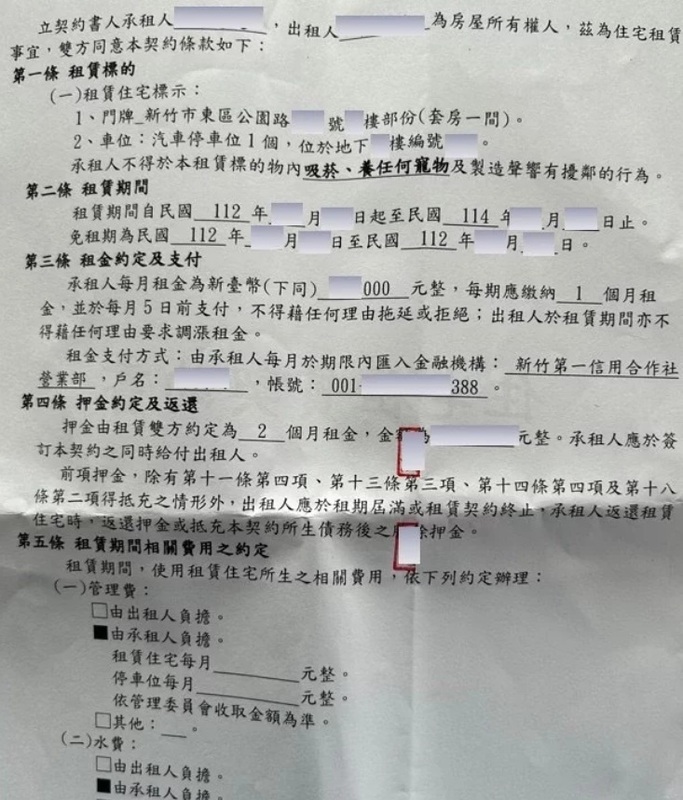 立契約書人承租人，出租人為房屋所有權人，茲為住宅租賃
事宜，雙方同意本契約條款如下：
第一條 租賃標的
(一)租賃住宅標示：
1、門牌_新竹市東區公園路 號 樓部份(套房一間)。
2、車位：汽車停車位1個，位於地下 樓編號 。
承租人不得於本租賃標的物內吸菸、養任何寵物及製造聲響有擾鄰的行為。
第二條 租賃期間
租賃期間自民國 112 年 月 日起至民國 114 年 月 日止。
免租期為民國 112 年 月 日至民國 112 年 月 日。
第三條 租金約定及支付
承租人每月租金為新臺幣(下同) 000 元整，每期應繳納 1 個月租
金，並於每月5日前支付，不得藉任何理由拖延或拒絕；出租人於租賃期間亦不
得藉任何理由要求調漲租金。
租金支付方式：由承租人每月於期限內匯入金融機構：新竹第一信用合作社
營業部，戶名： ，帳號：001- 388 。
第四條 押金約定及返還
押金由租賃雙方約定為 2 個月租金，金 為 元整。承租人應於簽
訂本契約之同時給付出租人。
前項押金，除有第十一條第四項、第十三條第三項、第十四條第四項及第十八
條第二項得抵充之情形外，出租人應於租期屆滿或租賃契約終止，承租人返還租賃
住宅時，返還押金或抵充本契約所生債務後之 餘押金。
第五條 租賃期間相關費用之約定
租賃期間，使用租賃住宅所生之相關費用，依下列約定辦理：
(一)管理費：
□由出租人負擔。
■由承租人負擔。
租賃住宅每月________元整。
停車位每月________元整。
依管理委員會收取金額為準。
□其他：__。
(二)水費：
□由出租人負擔。
■由承租人負擔。